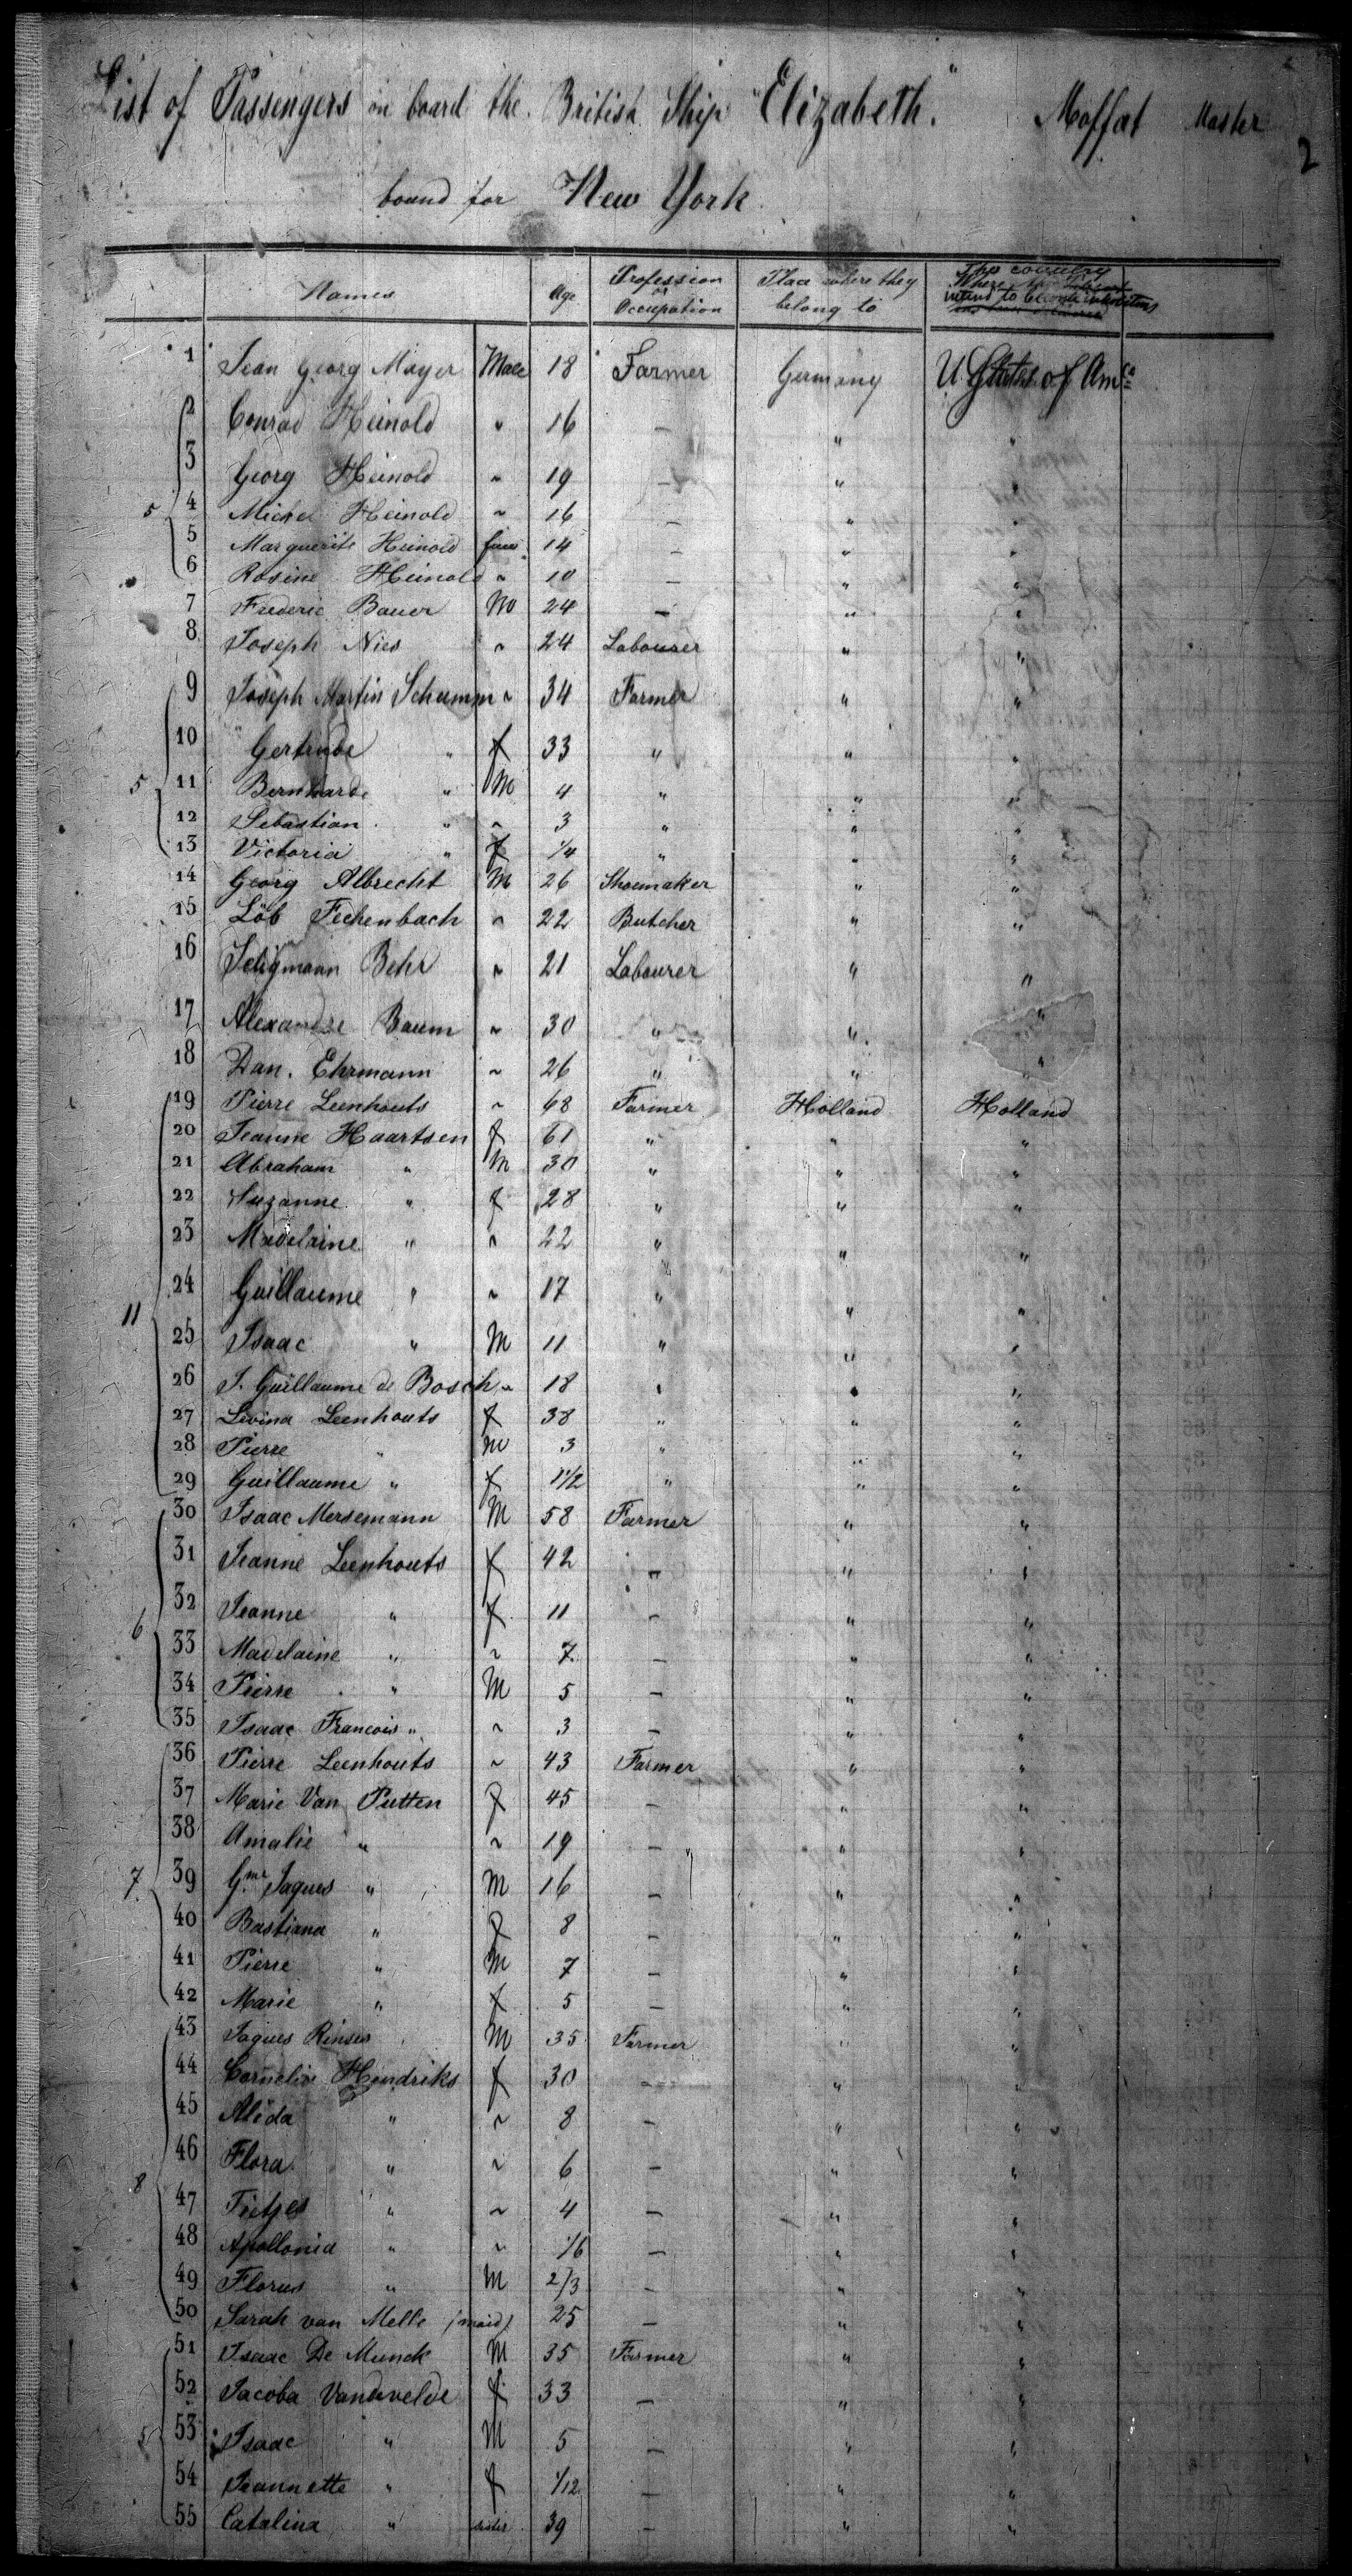 List of Passengers on board the British Ship "Elizabeth." Moffat Master
2
bound for New York
Names Age Profession or Occupation Place where they belong to The country intend to become inhabitans
1 Jean Georg Mayer Male 18 Farmer Germany U States of Amca
2 Conrad Heinold " 16 — " "
3 Georg Heinold " 19 — " "
5 4 Michel Heinold " 16 — " "
5 Marguerite Heinold fem 14 — " "
6 Rosine Heinold " 10 — " "
7 Frederic Bauer M 24 — " "
8 Joseph Nies " 24 Labourer " "
9 Joseph Martin Schumm " 34 Farmer " "
10 Gertrude " f 33 " " "
5 11 Bernharde " M 4 " " "
12 Sebastian " " 3 " " "
13 Victoria " f 1/4 " " "
14 Georg Albrecht M 26 Shoemaker " "
15 Löb Fechenbach " 22 Butcher " "
16 Seligmann Behr " 21 Labourer " "
17 Alexandre Baum " 30 " " "
18 Dan. Ehrmann " 26 " " "
19 Pierre Leenhouts " 68 Farmer Holland Holland
20 Jeanne Haartsen f 61 " " "
21 Abraham " M 30 " " "
22 Suzanne " f 28 " " "
23 Madelaine " " 22 " " "
11 24 Guillaume " " 17 " " "
25 Isaac " M 11 " " "
26 J. Guillaume de Bosch " 18 " " "
27 Levina Leenhouts f 38 " " "
28 Pierre " M 3 " " "
29 Guillaume " f 1 1/2 " " "
30 Isaac Mersemann M 58 Farmer " "
31 Jeanne Leenhouts f 42 — " "
6 32 Jeanne " f 11 — " "
33 Madelaine " " 7 — " "
34 Pierre " M 5 — " "
35 Isaac Francois " " 3 — " "
36 Pierre Leenhouts " 43 Farmer " "
37 Marie Van Putten f 45 — " "
38 Amalie " " 19 — " "
7 39 Gme Jaques " M 16 — " "
40 Bastiana " f 8 — " "
41 Pierre " M 7 — " "
42 Marie " f 5 — " "
43 Jaques Rinses M 35 Farmer " "
44 Cornelia Hendriks f 30 — " "
45 Aleda " " 8 — " "
46 Flora " " 6 — " "
8 47 Tietjes " " 4 — " "
48 Apollonia " " 1/6 — " "
49 Florus " M 2/3 — " "
50 Sarah van Melle (maid) 25 — " "
51 Isaac De Munck M 35 Farmer " "
52 Jacoba Vandevelde f 33 — " "
5 53 Isaac " M 5 — " "
54 Jeannette " f 1/12 — " "
55 Catalina " sister 39 — " "